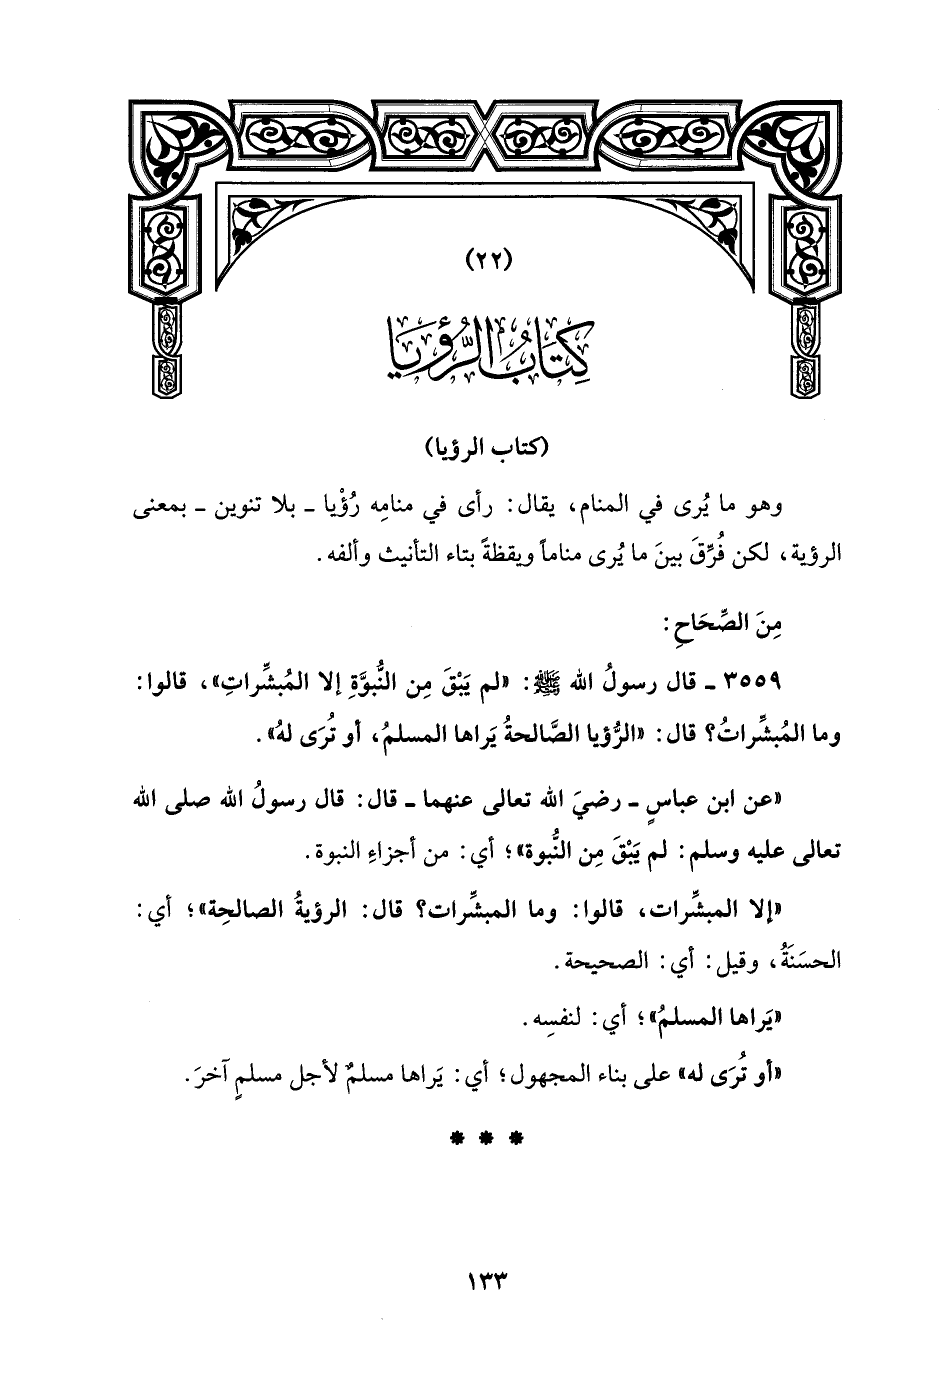 (٢٢)
كِتَابُ الرُّؤيَا
(كتاب الرؤيا)
وهو ما يُرى في المنام، يقال: رأى في منامِه رُؤْيا ـ بلا تنوين ـ بمعنى
الرؤية، لكن فُرِّقَ بينَ ما يُرى مناماً ويقظةً بتاء التأنيث وألفه.
مِنَ الصِّحَاحِ:
٣٥٥٩ ـ قال رسولُ الله ﷺ: «لم يَبْقَ مِن النُّبوَّةِ إلا المُبشِّراتِ»، قالوا:
وما المُبشِّراتُ؟ قال: «الرُّؤيا الصَّالحةُ يَراها المسلمُ، أو تُرَى لهُ».
«عن ابن عباسٍ ـ رضيَ الله تعالى عنهما ـ قال: قال رسولُ الله صلى الله
تعالى عليه وسلم: لم يَبْقَ مِن النُّبوة»؛ أي: من أجزاءِ النبوة.
«إلا المبشِّرات، قالوا: وما المبشِّرات؟ قال: الرؤيةُ الصالحِة»؛ أي:
الحسَنَةُ، وقيل: أي: الصحيحة.
«يَراها المسلمُ»؛ أي: لنفسِه.
«أو تُرَى له» على بناء المجهول؛ أي: يَراها مسلمٌ لأجل مسلمٍ آخرَ.
* * *
١٣٣